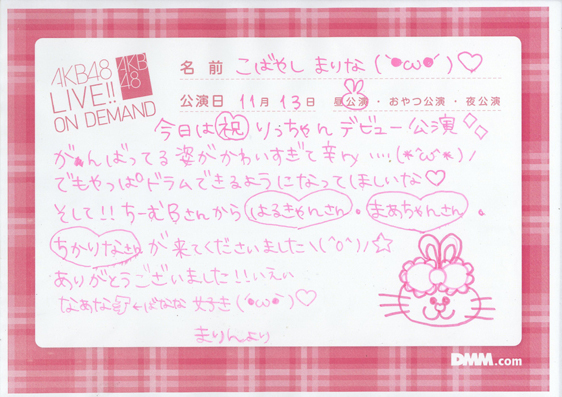 AKB48
LIVE!!
ON DEMAND
AKB
48
名前 こばやし まりな (´●ω●`)♡
公演日 11月13日 昼公演・おやつ公演・夜公演
今日は㊗りっちゃんデビュー公演◇◇
がんばってる姿がかわいすぎて辛ry…!(*´ω`*)ノ
でもやっぱ°ドラムできるようになってほしいな♡
そして!!ちーむBさんから はるきゃんさん・まあちゃんさん・
ちかりなさんが来てくださいました\(^o^)/☆
ありがとうございました!!いえい
なあな ←ばなな 好き(´●ω●`)♡
まりんより
DMM.com